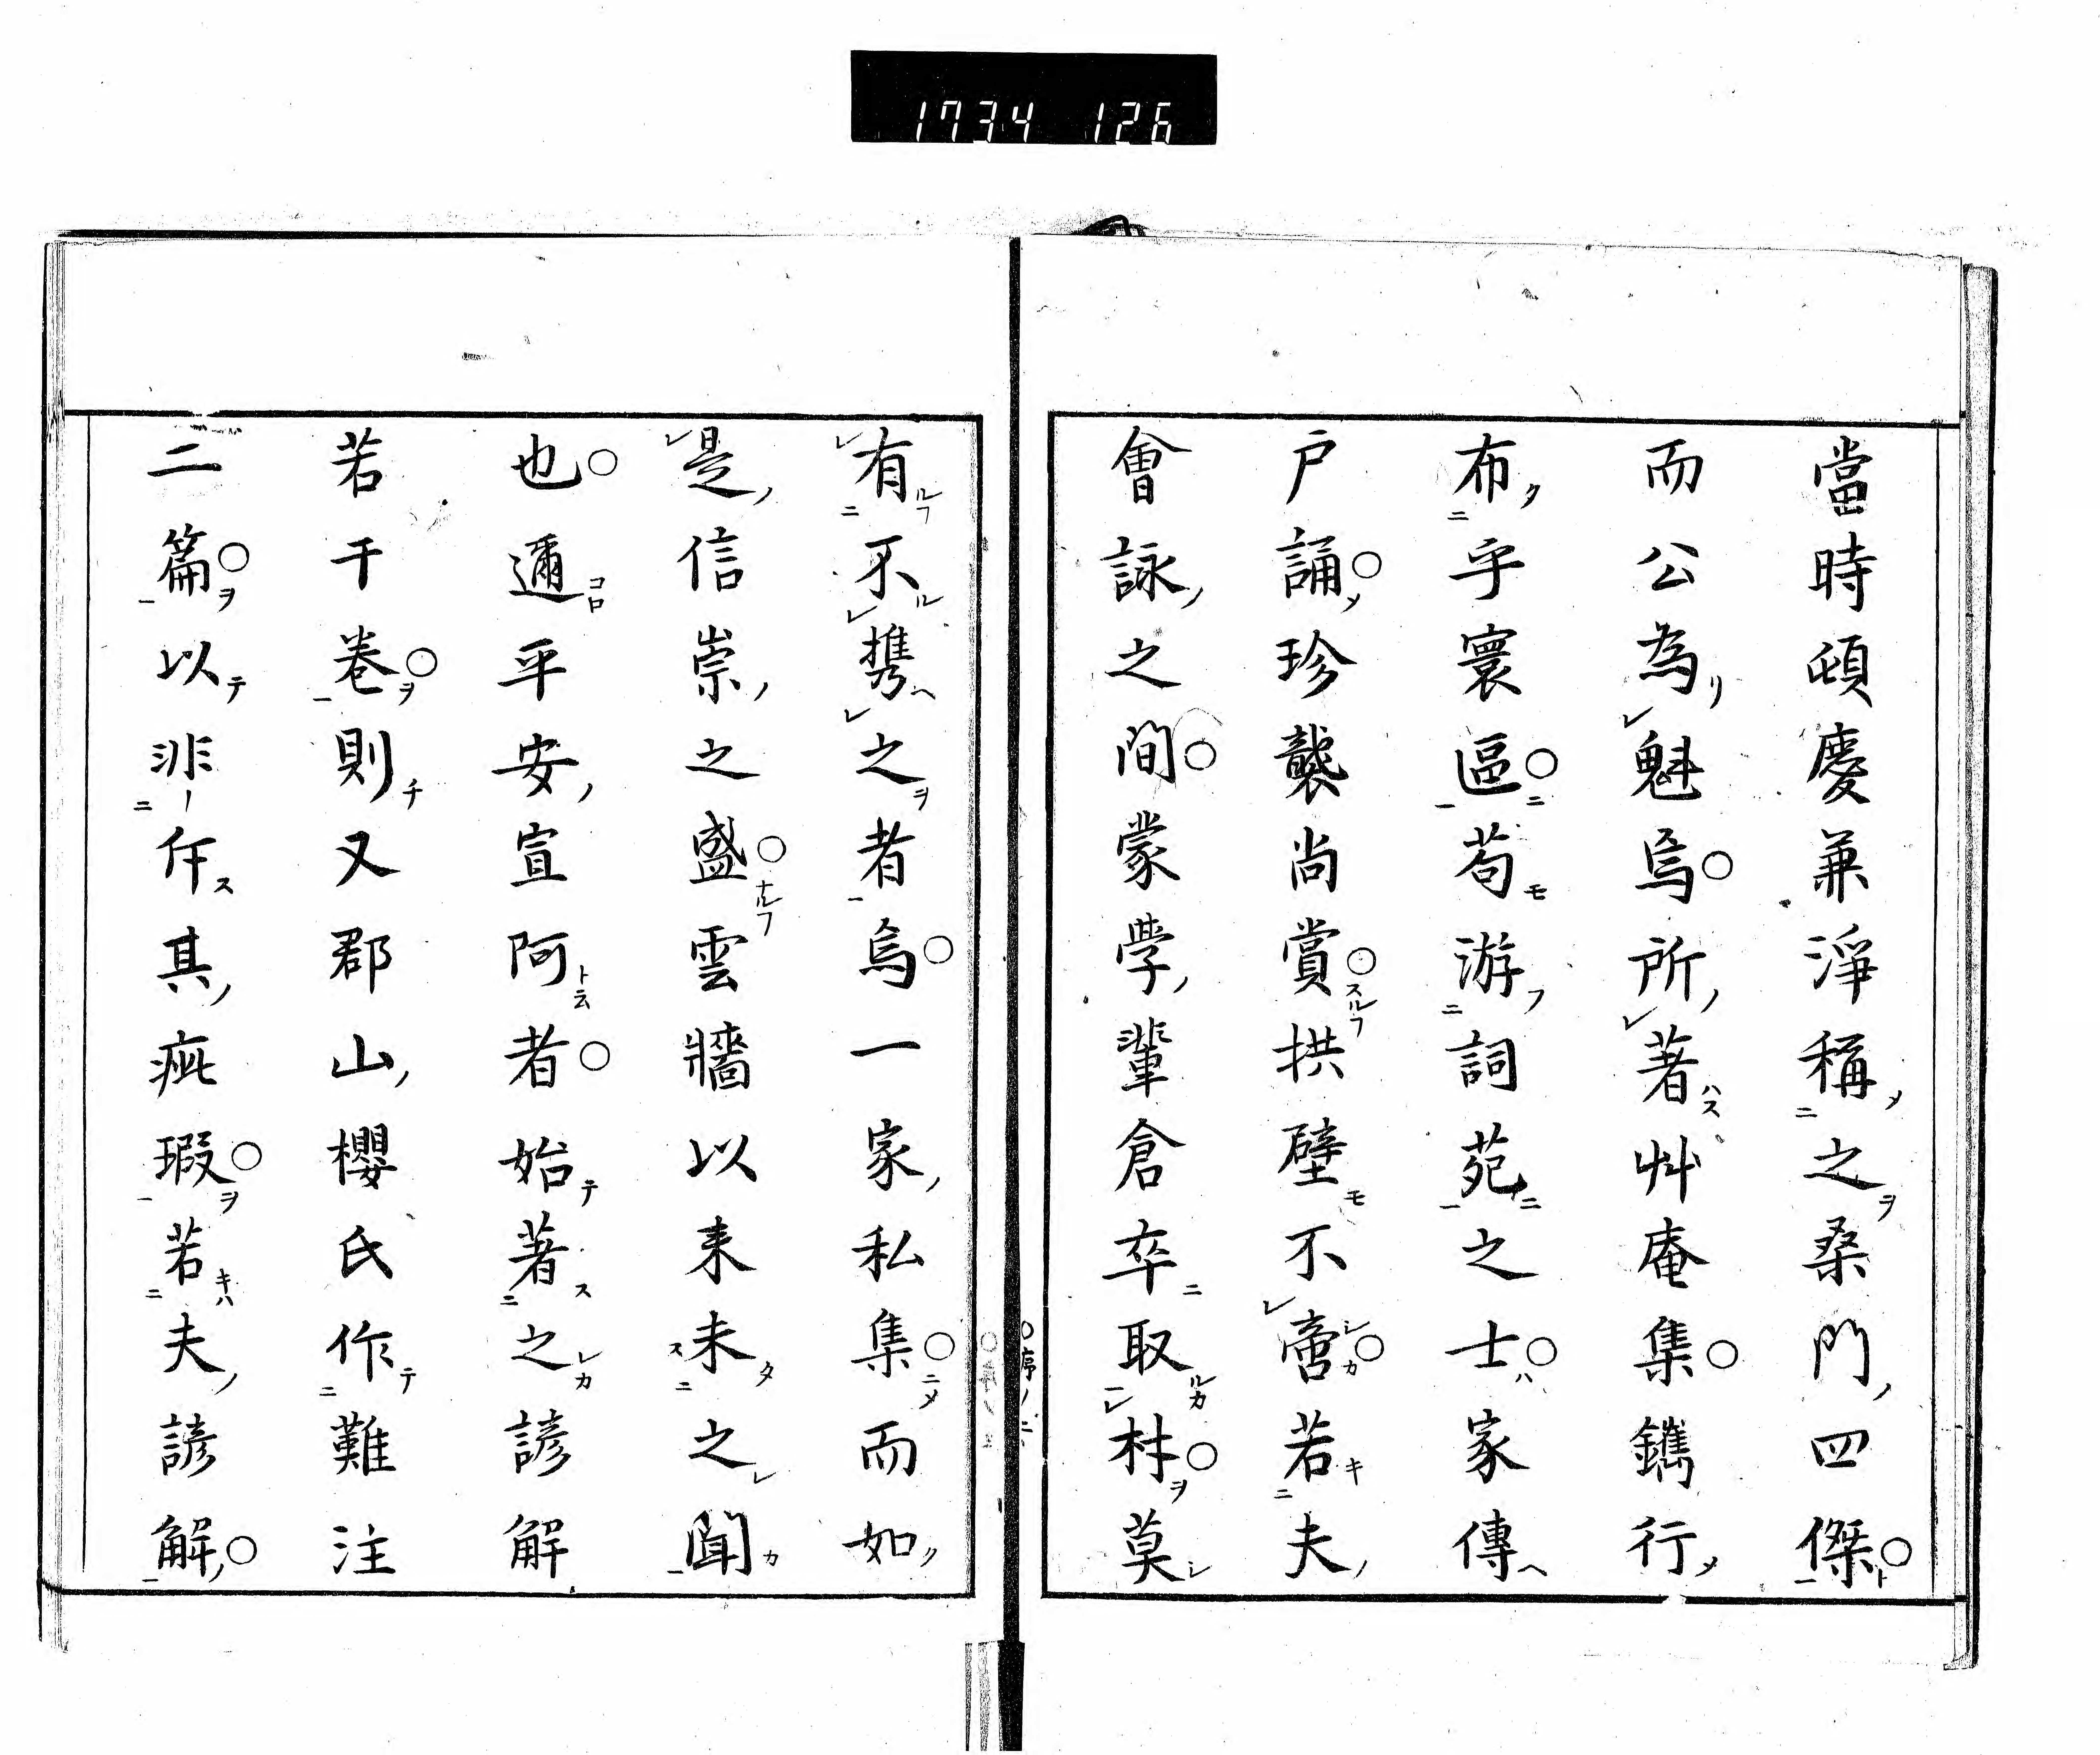 1734 126
當時頓慶兼淨稱之桑門四傑○
而公為魁焉○所著艸庵集○鐫行
布乎寰區○苟游詞苑之士○家傳
戸誦○珍襲尚賞○拱璧不啻○若夫
會詠之間○蒙學輩倉卒取材○莫
○序ノ二
有不携之者焉○一家私集○而如
是信崇之盛○雲牆以来未之聞
也○邇平安宣阿者○始著之諺解
若干卷○則又郡山櫻氏作難注
二篇○以非斥其疵瑕○若夫諺解○